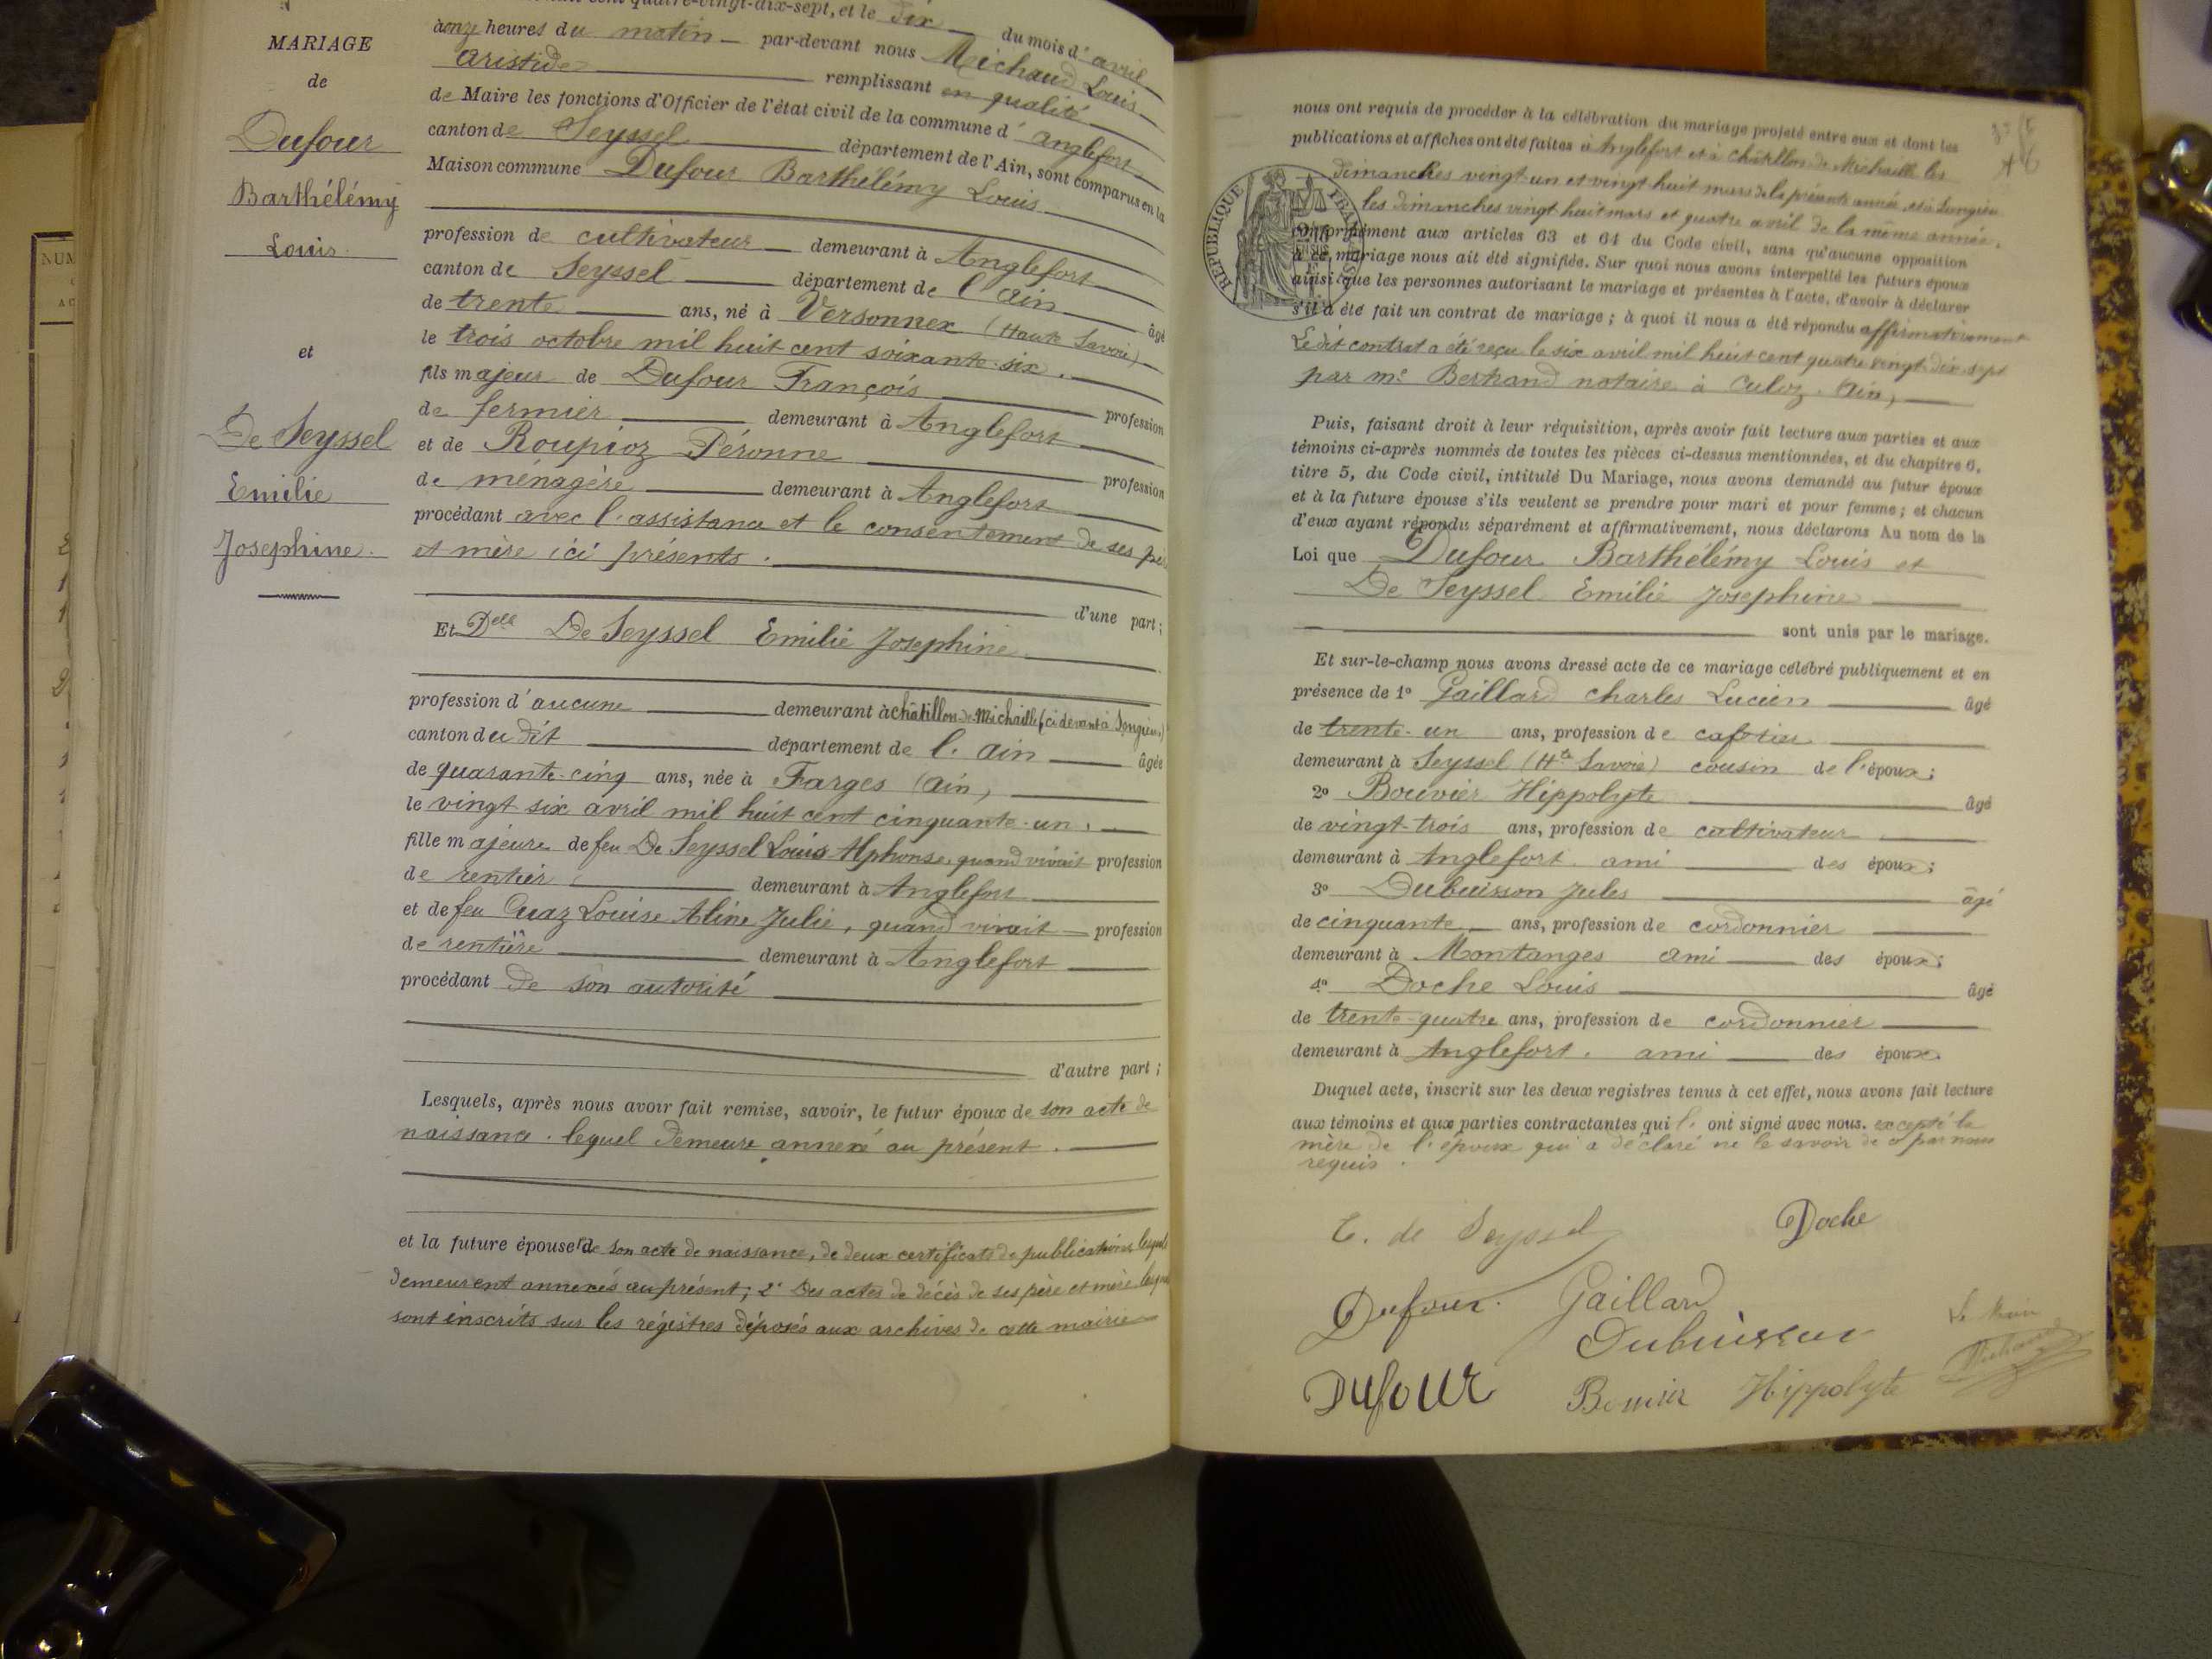 MARIAGE
de
Dufour
Barthélémy
Louis
et
De Seyssel
Emilie
Josephine.
cent quatre-vingt-dix-sept, et le dix du mois d'avril
à onze heures du matin par-devant nous Michaud Louis
Aristide remplissant en qualité
de Maire les fonctions d'Officier de l'état civil de la commune d'Anglefort
canton de Seyssel département de l'Ain, sont comparus en la
Maison commune Dufour Barthélémy Louis
profession de cultivateur demeurant à Anglefort
canton de Seyssel département de l'Ain âgé
de trente ans, né à Versonnex (Haute Savoie)
le trois octobre mil huit cent soixante-six.
fils majeur de Dufour François profession
de fermier demeurant à Anglefort
et de Roupioz Péronne profession
de ménagère demeurant à Anglefort
procédant avec l'assistance et le consentement de ses père
et mère ici présents.
d'une part;
Et Delle De Seyssel Emilie Josephine
profession d'aucune demeurant à Châtillon-de-Michaille (ci devant à Songieu)
canton du dit département de l'Ain âgée
de quarante-cinq ans, née à Farges (Ain)
le vingt six avril mil huit cent cinquante-un.
fille majeure de feu De Seyssel Louis Alphonse, quand vivait profession
de rentier demeurant à Anglefort
et de feu Louise Aline Julie, quand vivait profession
de rentière demeurant à Anglefort
procédant de son autorité
d'autre part;
Lesquels, après nous avoir fait remise, savoir, le futur époux de son acte de
naissance. lequel demeure annexé au présent.
et la future épouse 1° de son acte de naissance, de deux certificats de publications lesquels
demeurent annexés au présent; 2° Des actes de décès de ses père et mère lesquels
sont inscrits sur les régistres déposés aux archives de cette mairie
nous ont requis de procéder à la célébration du mariage projeté entre eux et dont les
publications et affiches ont été faites à Anglefort et à Châtillon de Michaille les
dimanches vingt-un et vingt-huit mars de la présente année et à Songieu
les dimanches vingt-huit mars et quatre avril de la même année.
conformément aux articles 63 et 64 du Code civil, sans qu'aucune opposition
à ce mariage nous ait été signifiée. Sur quoi nous avons interpellé les futurs époux
ainsi que les personnes autorisant le mariage et présentes à l'acte, d'avoir à déclarer
s'il a été fait un contrat de mariage; à quoi il nous a été répondu affirmativement
Le dit contrat a été reçu le six avril mil huit cent quatre vingt-dix-sept
par Me Bertrand notaire à Culoz. (Ain)
Puis, faisant droit à leur réquisition, après avoir fait lecture aux parties et aux
témoins ci-après nommés de toutes les pièces ci-dessus mentionnées, et du chapitre 6,
titre 5, du Code civil, intitulé Du Mariage, nous avons demandé au futur époux
et à la future épouse s'ils veulent se prendre pour mari et pour femme; et chacun
d'eux ayant répondu séparément et affirmativement, nous déclarons Au nom de la
Loi que Dufour Barthélémy Louis et
De Seyssel Emilie Josephine
sont unis par le mariage.
Et sur-le-champ nous avons dressé acte de ce mariage célébré publiquement et en
présence de 1° Gaillard Charles Lucien âgé
de trente-un ans, profession de cafetier
demeurant à Seyssel (Hte Savoie) cousin de l'époux;
2° Bouvier Hippolyte âgé
de vingt-trois ans, profession de cultivateur
demeurant à Anglefort. ami des époux;
3° Dubuisson Jules âgé
de cinquante ans, profession de cordonnier
demeurant à Montanges ami des époux;
4° Doche Louis âgé
de trente-quatre ans, profession de cordonnier
demeurant à Anglefort. ami des époux.
Duquel acte, inscrit sur les deux registres tenus à cet effet, nous avons fait lecture
aux témoins et aux parties contractantes qui l'ont signé avec nous. excepté la
mère de l'époux qui a déclaré ne le savoir de ce par nous
requis.
E. de Seyssel
Doche
Dufour.
Gaillard
Dubuisson
Le Maire
Michaud
DUfOUR
Bouvier Hippolyte
REPUBLIQUE FRANÇAISE